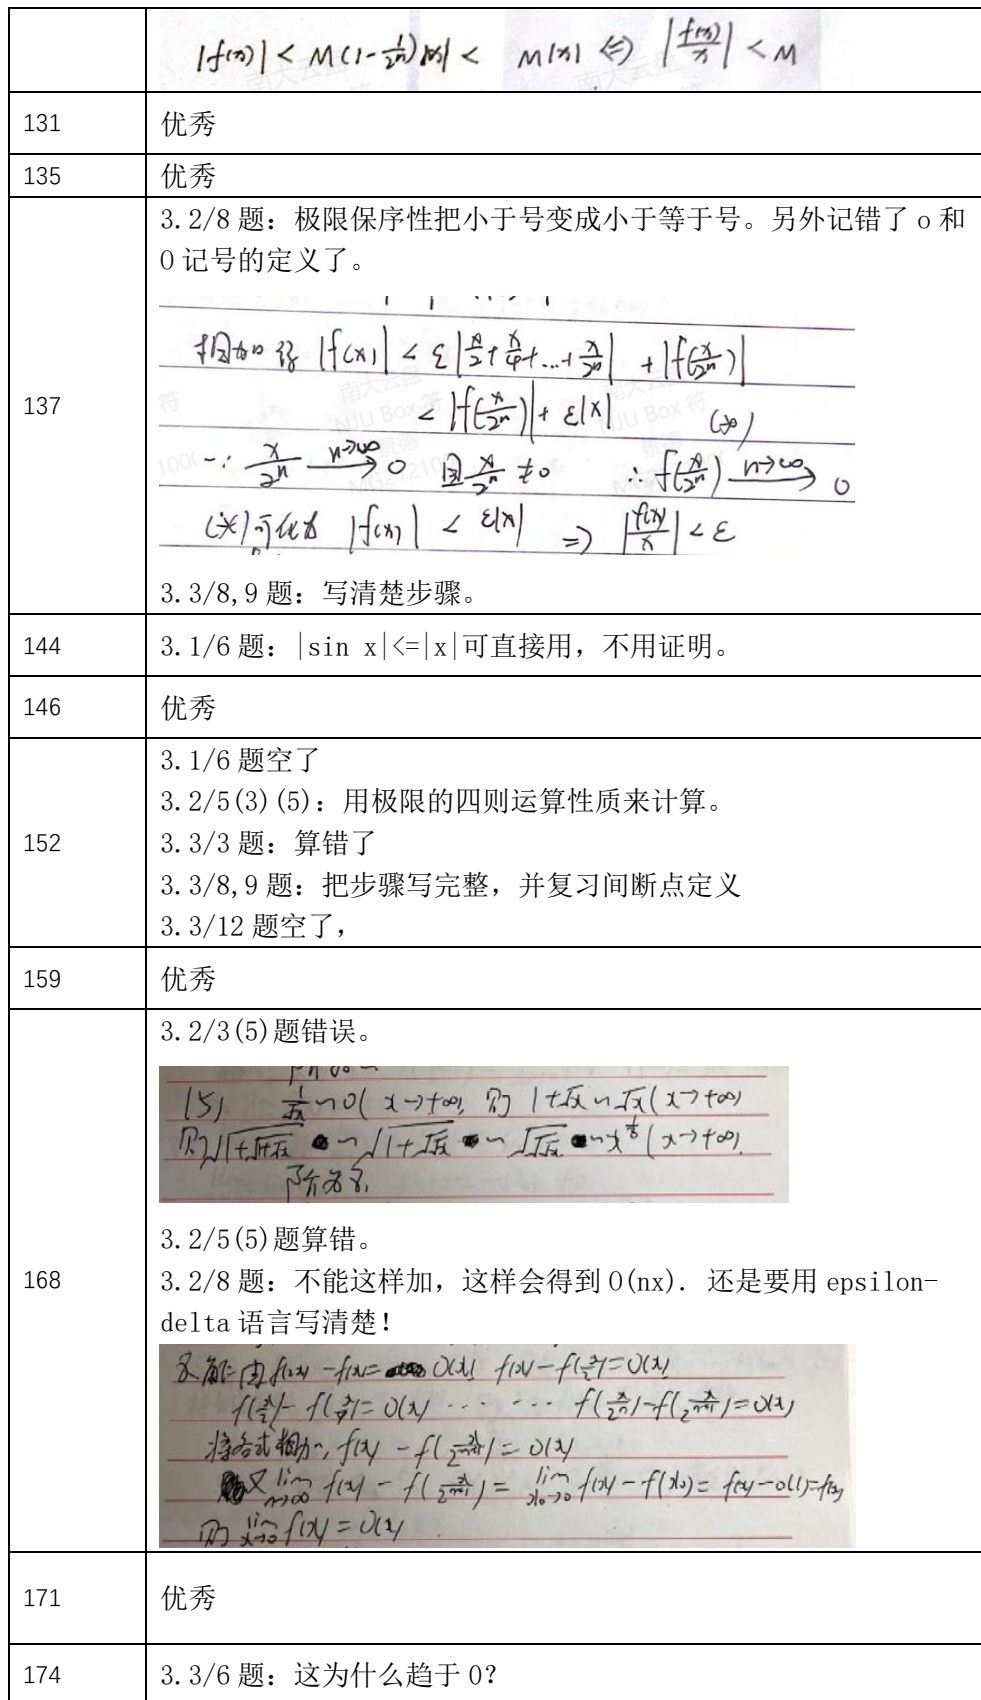 |f(x)| < M(1-\frac{1}{2^n})|x| < M|x| ⇔ |\frac{f(x)}{x}| < M
131 优秀
135 优秀
3.2/8 题：极限保序性把小于号变成小于等于号。另外记错了 o 和
O 记号的定义了。
137
相加得 |f(x)| < ε|\frac{x}{2}+\frac{x}{4}+...+\frac{x}{2^n}| + |f(\frac{x}{2^n})|
< |f(\frac{x}{2^n})| + ε|x| (※)
∵ \frac{x}{2^n} \xrightarrow{n→∞} 0 且\frac{x}{2^n} ≠0 ∴ f(\frac{x}{2^n}) \xrightarrow{n→∞} 0
(※)可化为 |f(x)| < ε|x| ⇒ |\frac{f(x)}{x}| < ε
3.3/8,9 题：写清楚步骤。
144 3.1/6 题：|sin x|<=|x|可直接用，不用证明。
146 优秀
3.1/6 题空了
3.2/5(3)(5)：用极限的四则运算性质来计算。
152 3.3/3 题：算错了
3.3/8,9 题：把步骤写完整，并复习间断点定义
3.3/12 题空了，
159 优秀
3.2/3(5)题错误。
(5) \frac{1}{\sqrt{x}} ~ 0( x→+∞), 则 1+√x ~ √x (x→+∞)
3.2/5(5)题算错。
168 3.2/8 题：不能这样加，这样会得到 O(nx). 还是要用 epsilon-
delta 语言写清楚！
f(\frac{x}{2})- f(\frac{x}{4})= O(x) ... ... f(\frac{x}{2^n})-f(\frac{x}{2^{n+1}})=O(x)
将各式相加, f(x) - f(\frac{x}{2^{n+1}}) = O(x)
则 \lim_{x→0} f(x) = O(x)
171 优秀
174 3.3/6 题：这为什么趋于 0？